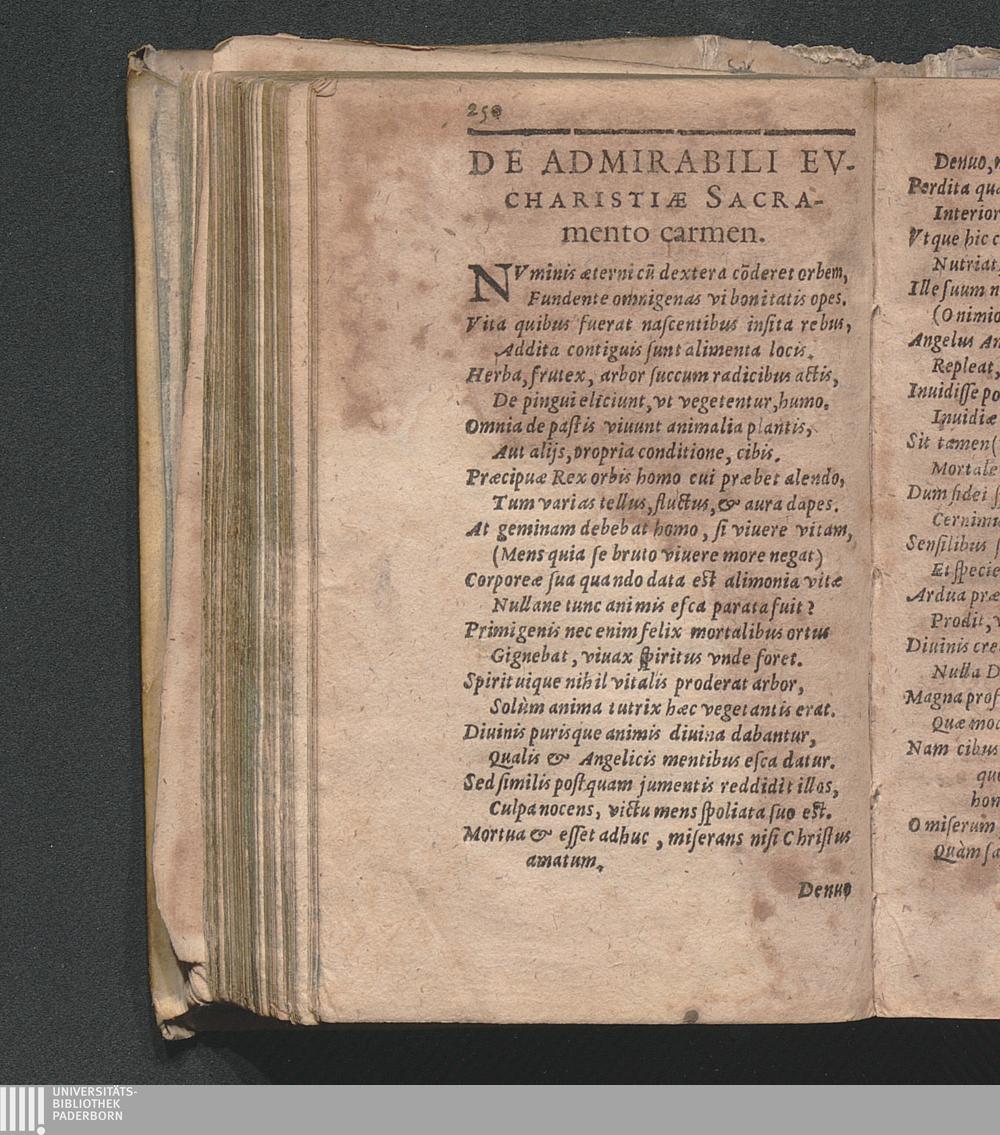 250
DE ADMIRABILI EV-
CHARISTIÆ SACRA-
mento carmen.
NVminis æterni cũ dextera cõderet orbem,
Fundente omnigenas vi bonitatis opes.
Vita quibus fuerat naſcentibus inſita rebus,
Addita contiguis ſunt alimenta locis.
Herba, frutex, arbor ſuccum radicibus actis,
De pingui eliciunt, vt vegetentur, humo.
Omnia de paſtis viuunt animalia plantis,
Aut alijs, propria conditione, cibis.
Præcipuæ Rex orbis homo cui præbet alendo,
Tum varias tellus, fluctus, & aura dapes.
At geminam debebat homo, ſi viuere vitam,
(Mens quia ſe bruto viuere more negat)
Corporeæ ſua quando data eſt alimonia vitæ
Nullane tunc animis eſca parata fuit?
Primigenis nec enim felix mortalibus ortus
Gignebat, viuax ſpiritus vnde foret.
Spirituique nihil vitalis proderat arbor,
Solùm anima tutrix hæc vegetantis erat.
Diuinis purisque animis diuina dabantur,
Qualis & Angelicis mentibus eſca datur.
Sed ſimilis poſtquam jumentis reddidit illos,
Culpa nocens, victu mens ſpoliata ſuo eſt.
Mortua & eſſet adhuc, miſerans niſi Chriſtus
amatum.
Denuo
Denuo,
Perdita
Interior
Vt que hic
Nutriat,
Ille ſuum
(O nimio
Angelus
Repleat,
Inuidiſſe
Inuidiæ
Sit tamen
Mortale
Dum fidei
Senſilibus
Et
Ardua
Prodit,
Diuinis
Nulla
Magna
Quæ
Nam cibus
O miſerum
Quàm
UNIVERSITÄTS-
BIBLIOTHEK
PADERBORN